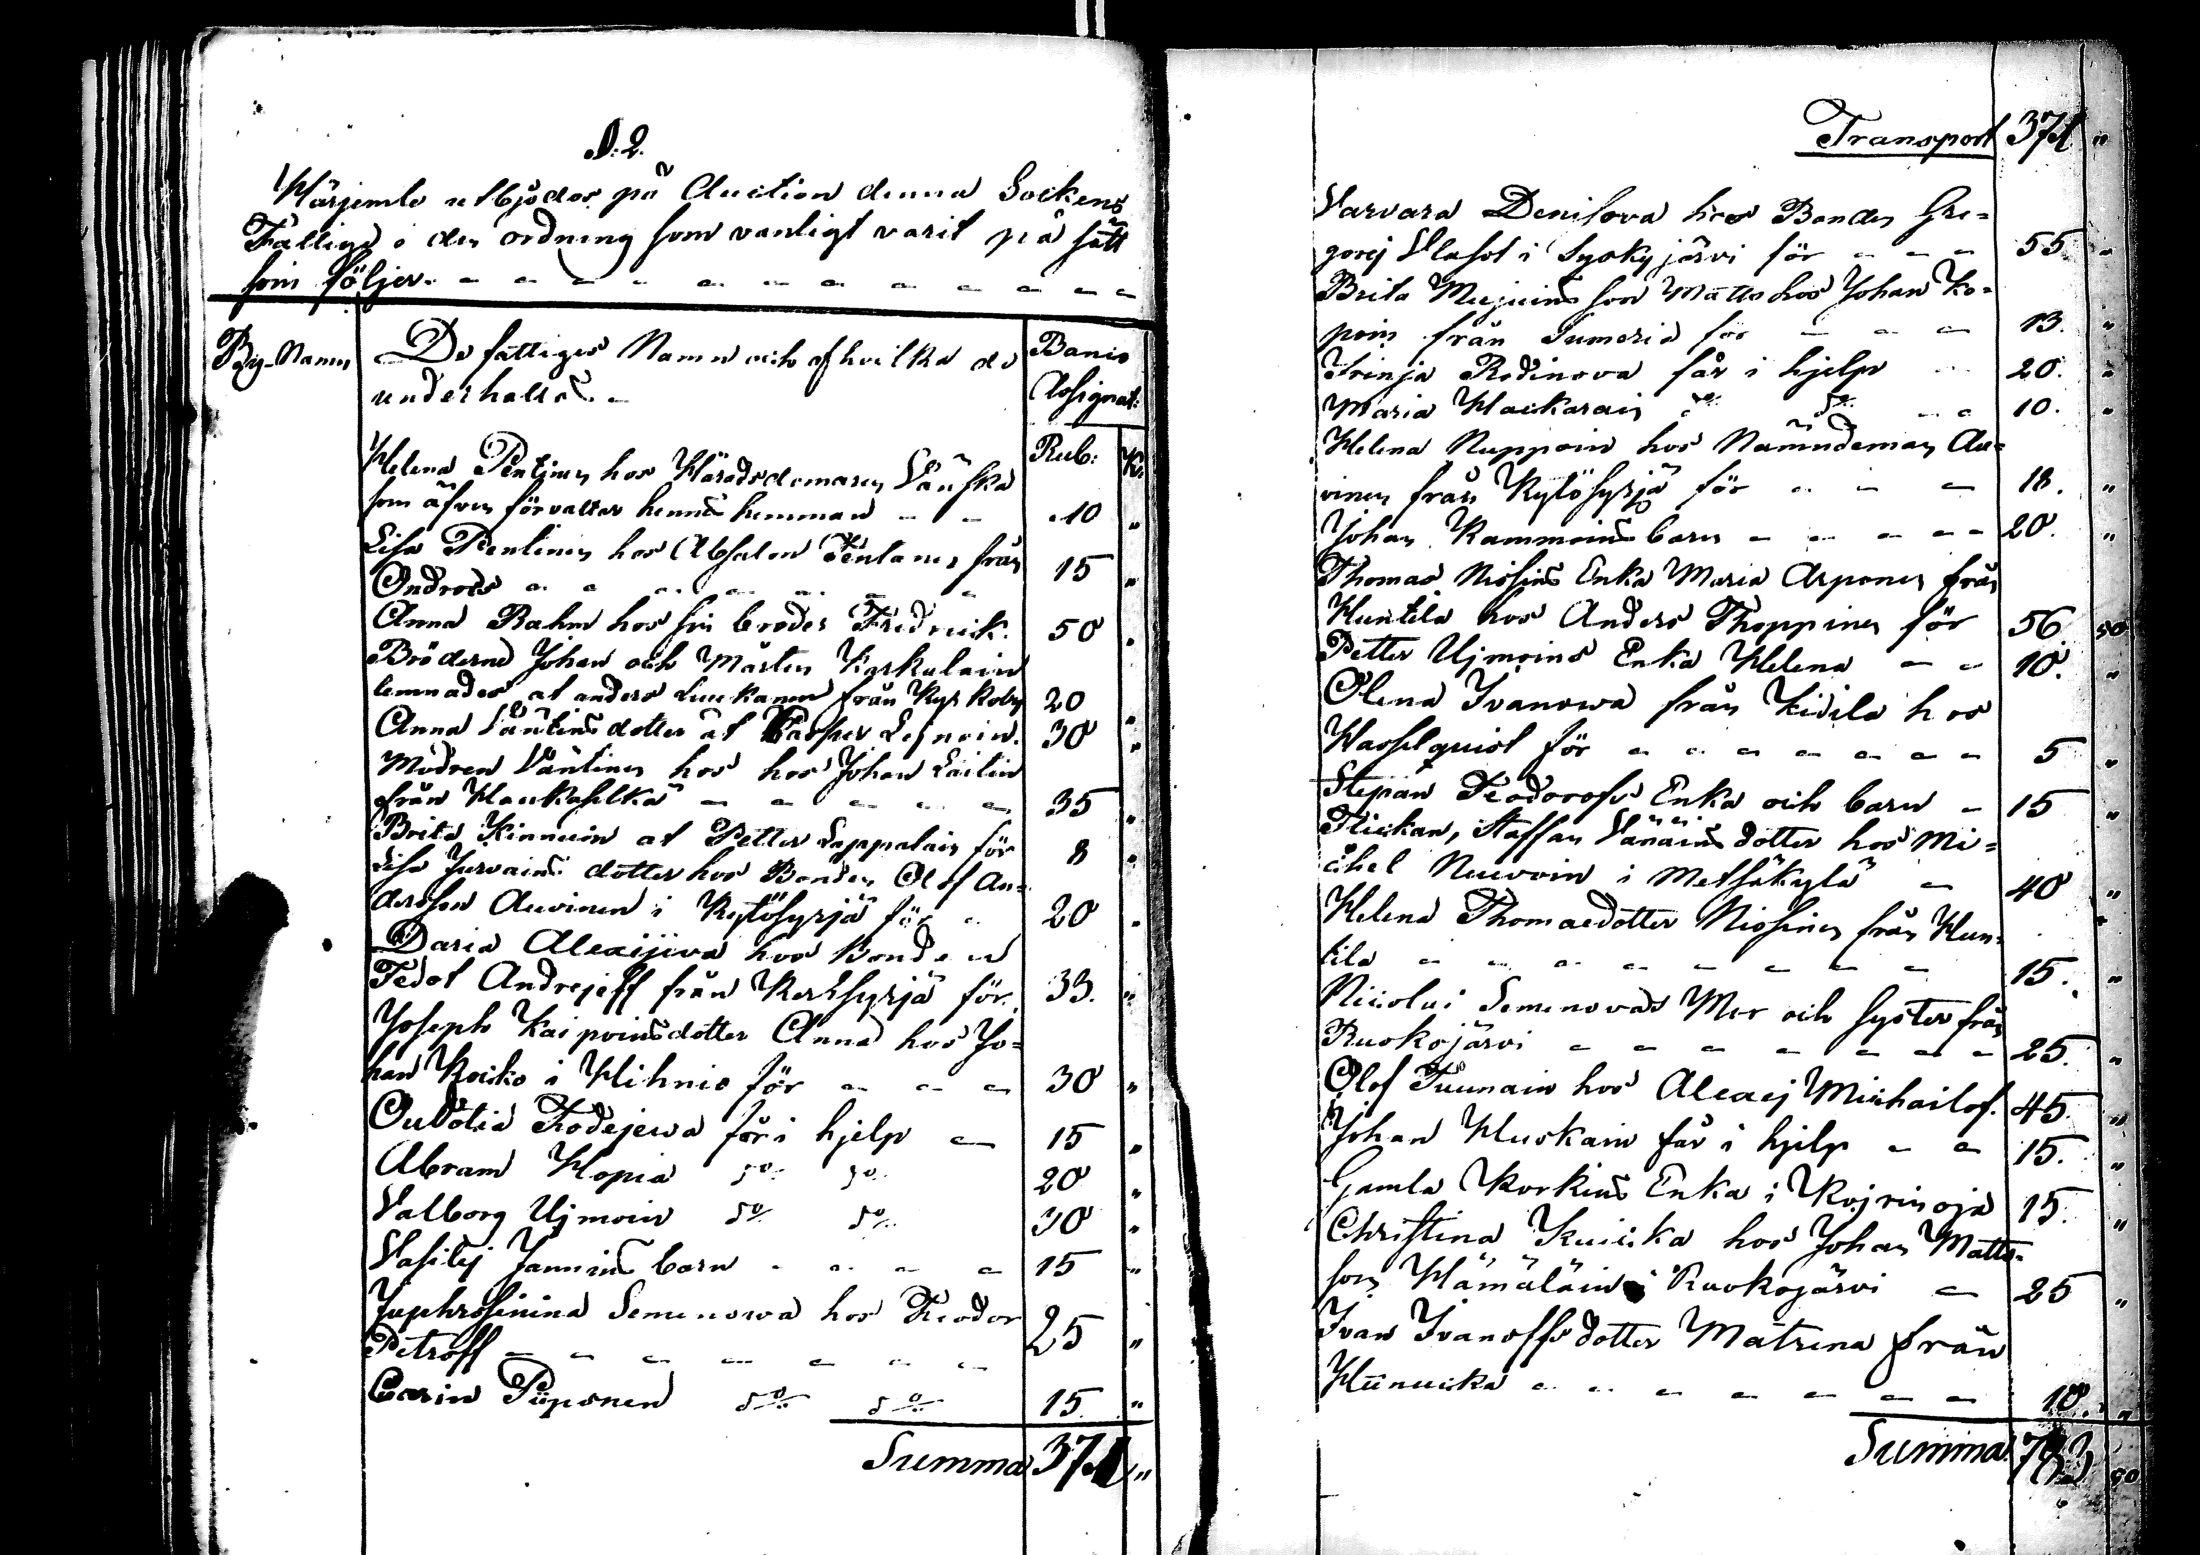 §. 2.
Härjemte utbjödos på Auction denna Sockens
Fattige i den ordning som vanligt varit på sätt
som följer.
By-Namn
De fattiges Namn och af hvilka de
underhallas.
Banco
Assignat:
Rub: K.
Helena Pentinen hos Häradsdomaren Vänskä
som äfven förvaltar hennes hemman 10 "
Lisa Pentinen hos Absalon Pentanen från
Ondrois 15 "
Anna Rahm hos sin broder Fredrick. 50 "
Bröderne Johan och Mårten Karkulain
lemnades at anders Luukanen från Kyrkoby 20 "
Anna Väntins dotter at Casper Leinoin. 30 "
Modren Väntinen hos hos Johan Laitin
från Haukaselkä 35 "
Brita Kinnuin at Petter Lappalain för 8 "
Lisa Jurvains dotter hos Bonden Olof An=
dersson Auvinen i Kytösyrjä för 20 "
Daria Alexijeva hos Bonden
Fedot Andrejeff från Kerisyrjä för. 33. "
Joseph Kaipoins dotter Anna hos Jo=
han Kocko i Hihnio för 30 "
Oudotia Fodejewa får i hjelp 15 "
Abram Hopia do do 20 "
Valborg Ujmoin do do 30 "
Vasilej Jannins barn 15 "
Juphrosinina Semenowa hos Feodor
Petroff 25 "
Carin Piiponen do do 15. "
Summa 371 "
Transport 371 "
Varvara Denisova hos Bonden Gre=
gorej Vlasof i Syskyjärvi för 55 "
Brita Mujuins son Matts hos Johan Ko=
poin från Sumeria för 13. "
Irinja Rodinova får i hjelp 20. "
Maria Hackarain do do 10. "
Helena Nuppoin hos Nämndeman Au=
vinen från Kytösyrjä för 18. "
Johan Rammoins barn 20. "
Thomas Nissins Enka Maria Arponen från
Huntila hos Anders Thoppinen för 56 50
Petter Ujmoins Enka Helena 10. "
Olena Ivanowa från Kidila hos
Hasselquist för 5 "
Stepan Feodoroffs Enka och barn 15 "
Flickan, Staffan Vänäins dotter hos Mi=
chel Nuuvoin i Metsäkylä 40 "
Helena Thomaedotter Nissinen från Hun=
tila 15. "
Nicolai Semenovas Mor och Syster från
Ruokojärvi 25. "
Olof Tuunain hos Alexej Michailof. 45. "
Johan Huskain får i hjelp 15. "
Gamla Korkins Enka i Kojrinoja 15. "
Christina Kuicka hos Johan Matts=
son Hämäläin i Ruokojärvi 25 "
Ivan Ivanoffs dotter Matrena från
Hunucka 10. "
Summa 50